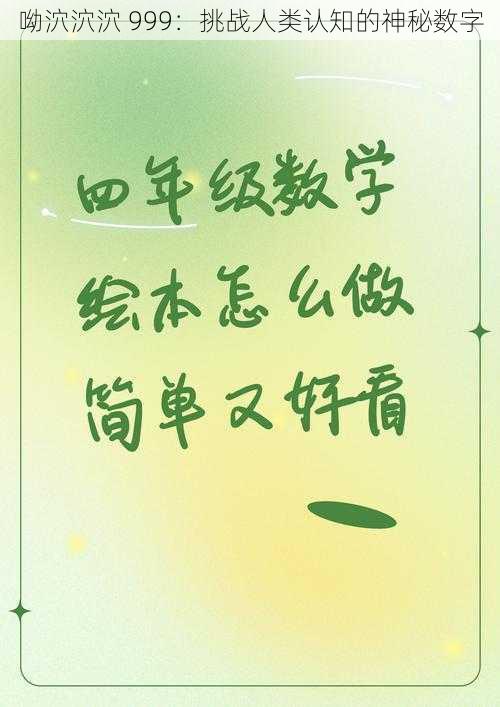 呦泬泬泬 999：挑战人类认知的神秘数字
四年级数学
绘本怎么做
简单又好看